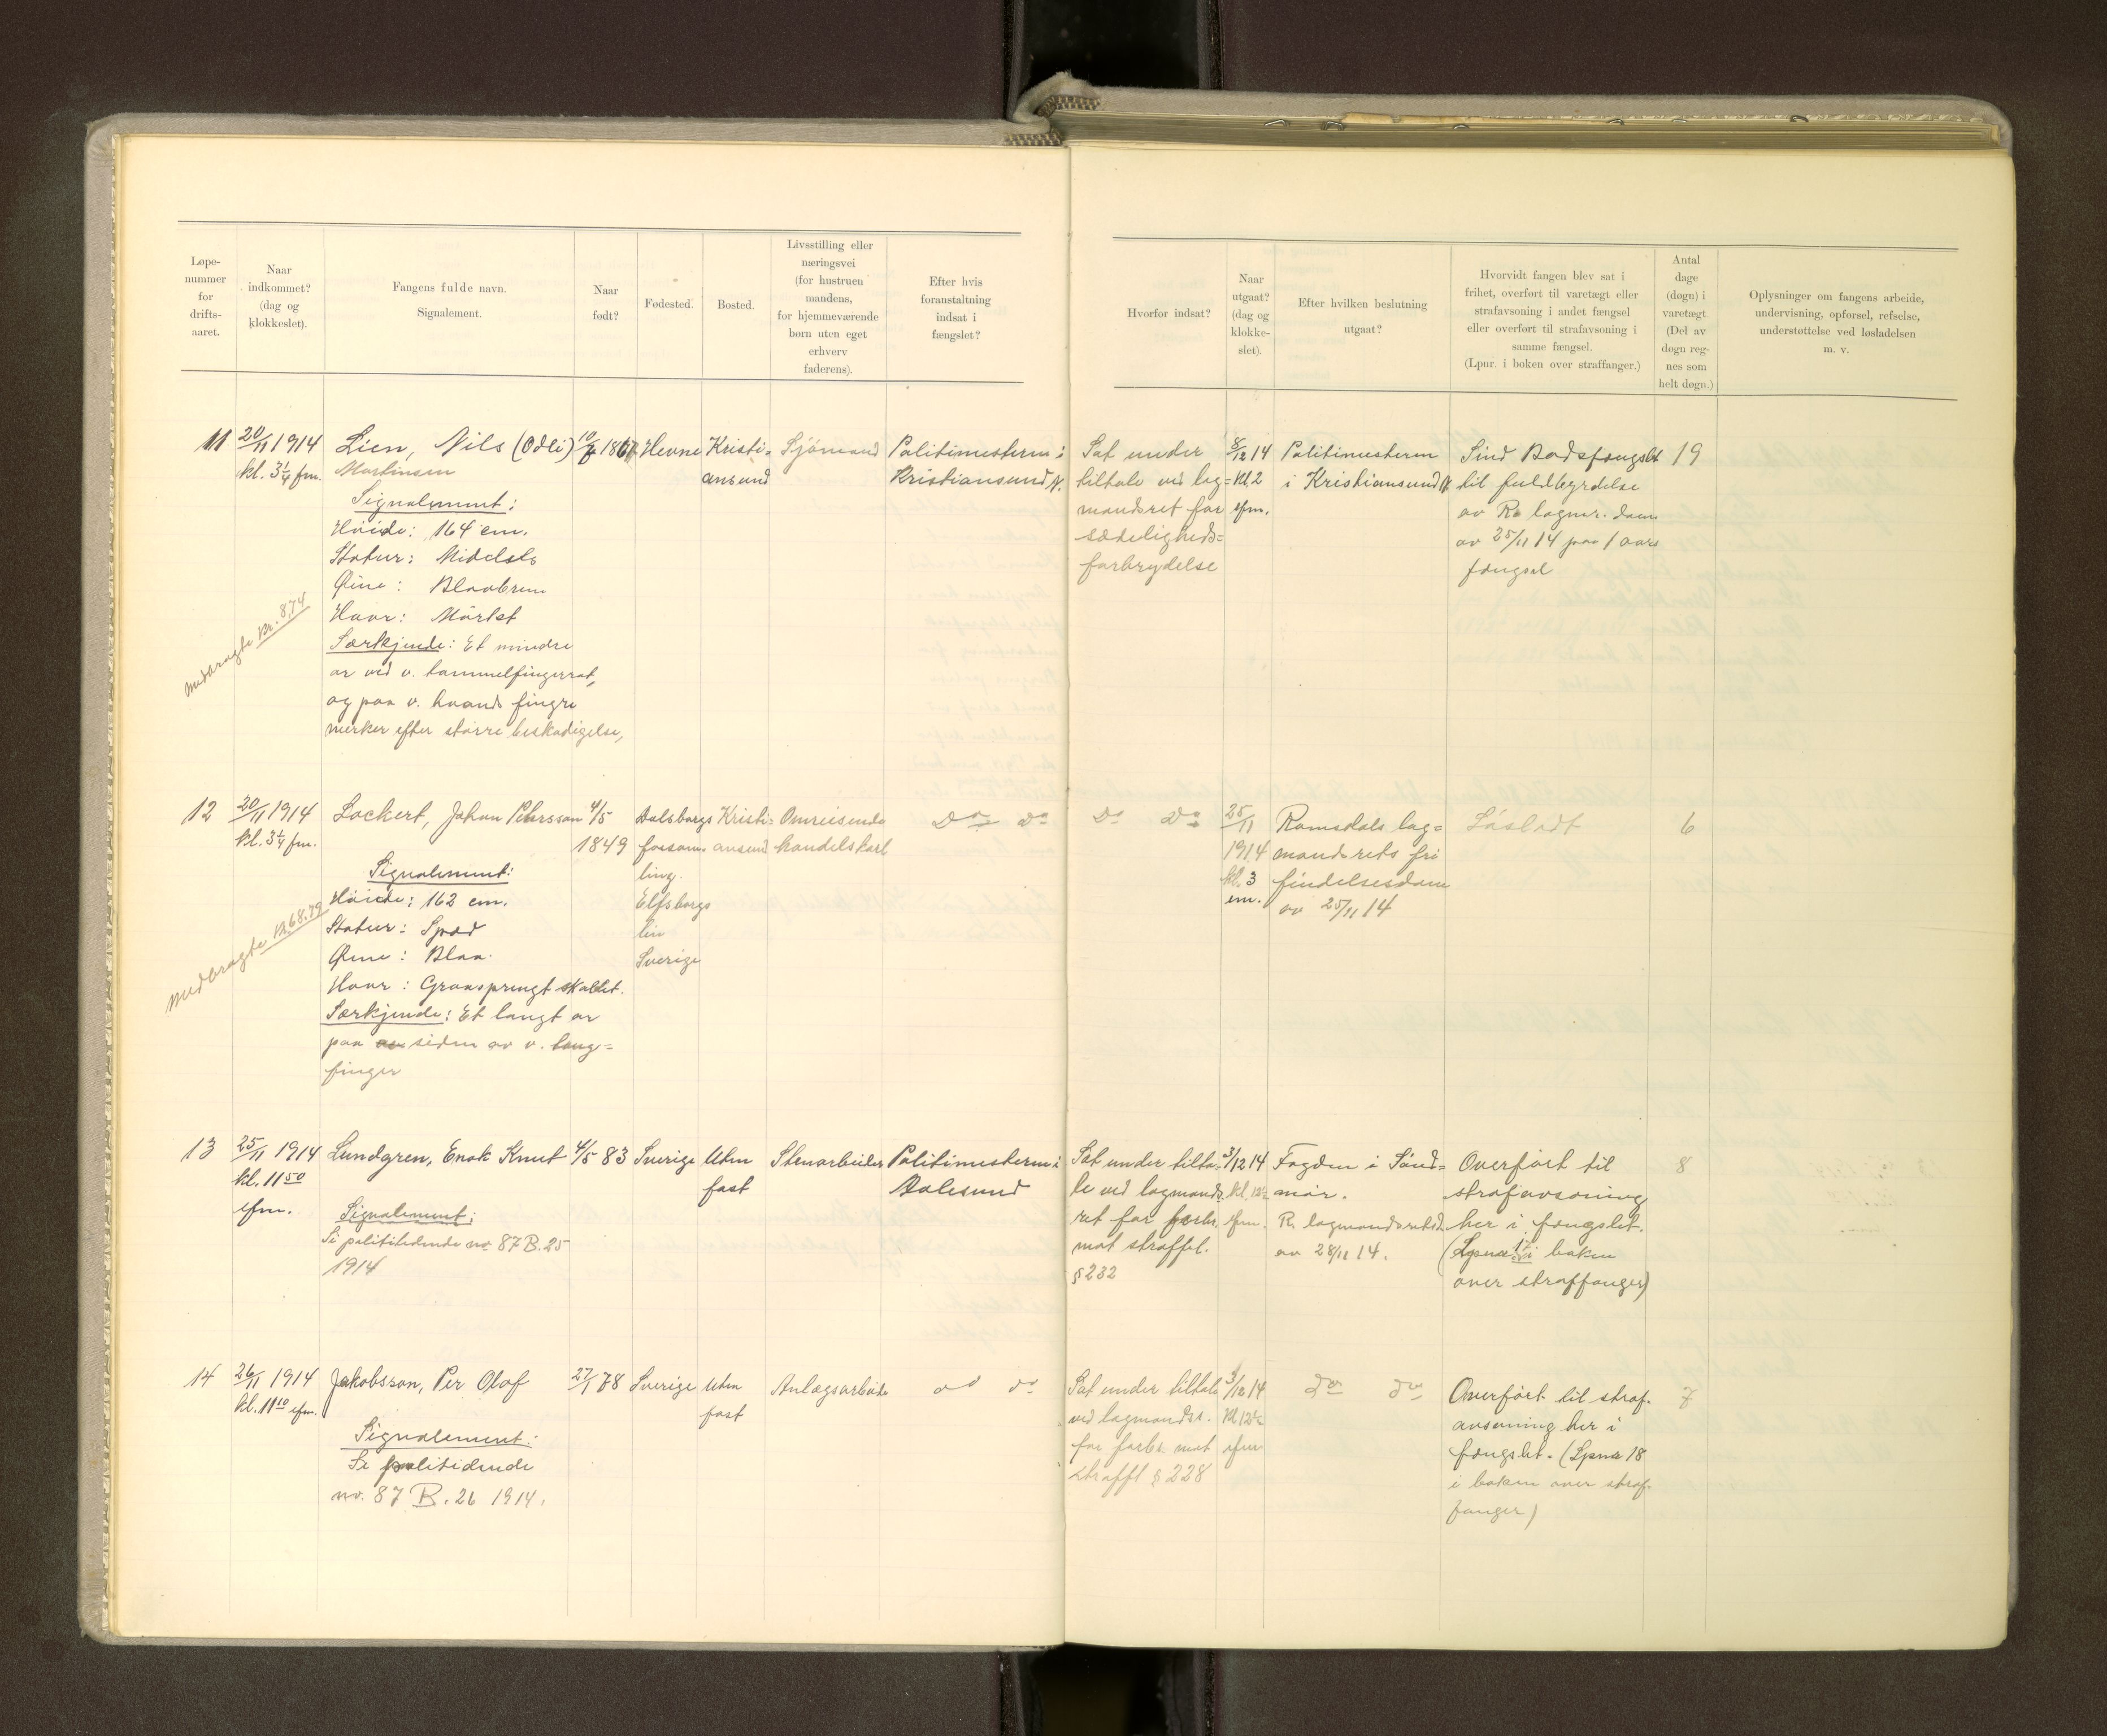 Løpe-
nummer
for
drifts-
aaret.
Naar
indkommet?
(dag og
klokkeslet).
Fangens fulde navn.
Signalement.
Naar
født?
Fødested.
Bosted.
Livsstilling eller
næringsvei
(for hustruen
mandens,
for hjemmeværende
børn uten eget
erhverv
faderens).
Efter hvis
foranstaltning
indsat i
fængslet?
Hvorfor indsat?
Naar
utgaat?
(dag og
klokke-
slet).
Efter hvilken beslutning
utgaat?
Hvorvidt fangen blev sat i
frihet, overført til varetægt eller
strafavsoning i andet fængsel
eller overført til strafavsoning i
samme fængsel.
(Lpnr. i boken over straffanger.)
Antal
dage
(døgn) i
varetægt
(Del av
døgn reg-
nes som
helt døgn.)
Oplysninger om fangens arbeide,
undervisning, opførsel, refselse,
understøttelse ved løsladelsen
m. v.
11
20/11 1914
kl. 3¼ fm.
Lien, Nils (Odli)
Martinsen
Signalement:
Høide: 164 cm.
Statur: Middels
Øine: Blaabrun
Haar: Mörket
Særkjende: Et mindre
ar ved v. tommelfingerrot,
og paa v. haands fingre
merker efter større beskadigelse,
medbragte kr. 8,74
Hevne
Kristi-
ansund
Sjömand
Politimesteren i
Kristiansund N.
Sat under
tiltale ved lag-
mandsret for
sædeligheds-
forbrydelse
8/12 14
kl. 2
efm.
Politimesteren
i Kristiansund N
Send Bodsfængslet
til fuldbyrdelse
av R. lagmr. dom
av 25/11 14 paa 1 aars
fængsel
19
12
20/11 1914
kl. 3¼ fm.
Lockert, Johan Petersson
Signalement:
Høide: 162 cm.
Statur: Spæd
Øine: Blaa.
Haar: Graasprengt skallet.
Særkjende: Et langt ar
paa siden av v. lang-
finger
medbragte kr. 68.79
4/5
1849
Dalsborgs
forsam-
ling.
Elfsborgs
län
Sverige
Kristi-
ansund
Omreisende
handelskarl
Do Do
Do Do
25/11
1914
kl. 3
em.
Romsdals lag-
mandsrets fri
findelsesdom
av 25/11 14
Løslatt
6
13
25/11 1914
kl. 11 50
efm.
Lundgren, Enok Knut
Signalement:
Se polititidende no. 87 B. 25
1914
4/5 83
Sverige
Uten
fast
Stenarbeider
Politimesteren i
Aalesund
Sat under tilta-
le ved lagmands-
ret for forbr.
mot straffel.
§ 232
3/12 14
kl. 12½
efm.
Fogden i Sönd-
mør.
R. lagmandsretsd.
av 28/11 14.
Overført til
strafavsoning
her i fængslet.
(Lpnr 17 i boken
over straffanger)
8
14
26/11 1914
kl. 11 10 efm.
Jakobsson, Per Olof
Signalement:
Se polititidende
no. 87 B. 26 1914.
27/1 78
Sverige
Uten
fast
Anlægsarbeider
do do
Sat under tiltale
ved lagmandsr.
for forbr. mot
straffl § 228
3/12 14
kl 12½
efm
do do
Overført til straf-
avsoning her i
fængslet. (Lpnr 18
i boken over straf-
fanger)
7